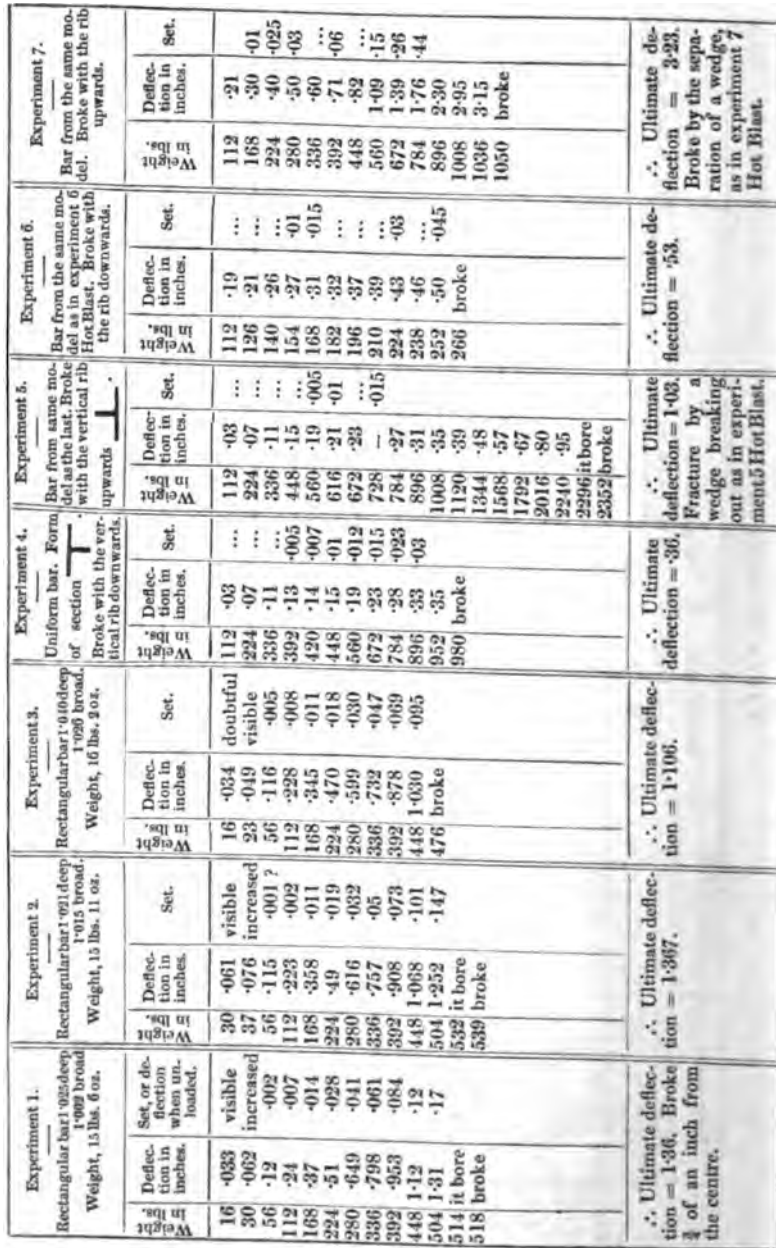 Experiment 1.
Rectangular bar 1·025 deep
1·002 broad
Weight, 15 lbs. 6 oz.
Weight in lbs. Deflection in inches. Set, or deflection when unloaded.
16 ·033 visible
30 ·062 increased
56 ·12 ·002
112 ·24 ·007
168 ·37 ·014
224 ·51 ·028
280 ·649 ·041
336 ·798 ·061
392 ·953 ·084
448 1·12 ·12
504 1·31 ·17
514 it bore
518 broke
∴ Ultimate deflec-
tion = 1·36. Broke
¾ of an inch from
the centre.
Experiment 2.
Rectangular bar 1·021 deep
1·015 broad.
Weight, 15 lbs. 11 oz.
Weight in lbs. Deflection in inches. Set.
30 ·061 visible
37 ·076 increased
56 ·115 ·001 ?
112 ·223 ·002
168 ·358 ·011
224 ·49 ·019
280 ·616 ·032
336 ·757 ·05
392 ·908 ·073
448 1·068 ·101
504 1·252 ·147
532 it bore
539 broke
∴ Ultimate deflec-
tion = 1·367.
Experiment 3.
Rectangular bar 1·040 deep
1·026 broad.
Weight, 16 lbs. 2 oz.
Weight in lbs. Deflection in inches. Set.
16 ·034 doubtful
23 ·049 visible
56 ·116 ·005
112 ·228 ·008
168 ·345 ·011
224 ·470 ·018
280 ·599 ·030
336 ·732 ·047
392 ·878 ·069
448 1·030 ·095
476 broke
∴ Ultimate deflec-
tion = 1·106.
Experiment 4.
Uniform bar. Form
of section .
Broke with the ver-
tical rib downwards.
Weight in lbs. Deflection in inches. Set.
112 ·03 ...
224 ·07 ...
336 ·11 ...
392 ·13 ·005
420 ·14 ·007
448 ·15 ·01
560 ·19 ·012
672 ·23 ·015
784 ·28 ·023
896 ·33 ·03
952 ·35
980 broke
∴ Ultimate
deflection = ·36.
Experiment 5.
Bar from same mo-
del as the last. Broke
with the vertical rib
upwards .
Weight in lbs. Deflection in inches. Set.
112 ·03 ...
224 ·07 ...
336 ·11 ...
448 ·15 ...
560 ·19 ·005
616 ·21 ·01
672 ·23 ...
728 – ·015
784 ·27
896 ·31
1008 ·35
1120 ·39
1344 ·48
1568 ·57
1792 ·67
2016 ·80
2240 ·95
2296 it bore
2352 broke
∴ Ultimate
deflection = 1·03.
Fracture by a
wedge breaking
out as in experi-
ment 5 Hot Blast.
Experiment 6.
Bar from the same mo-
del as in experiment 6
Hot Blast. Broke with
the rib downwards.
Weight in lbs. Deflection in inches. Set.
112 ·19 ...
126 ·21 ...
140 ·26 ...
154 ·27 ·01
168 ·31 ·015
182 ·32 ...
196 ·37 ...
210 ·39 ...
224 ·43 ·03
238 ·46 ...
252 ·50 ·045
266 broke
∴ Ultimate de-
flection = ·53.
Experiment 7.
Bar from the same mo-
del. Broke with the rib
upwards.
Weight in lbs. Deflection in inches. Set.
112 ·21
168 ·30 ·01
224 ·40 ·025
280 ·50 ·03
336 ·60 ...
392 ·71 ·06
448 ·82 ...
560 1·09 ·15
672 1·39 ·26
784 1·76 ·44
896 2·30
1008 2·95
1036 3·15
1050 broke
∴ Ultimate de-
flection = 3·23.
Broke by the sepa-
ration of a wedge,
as in experiment 7
Hot Blast.